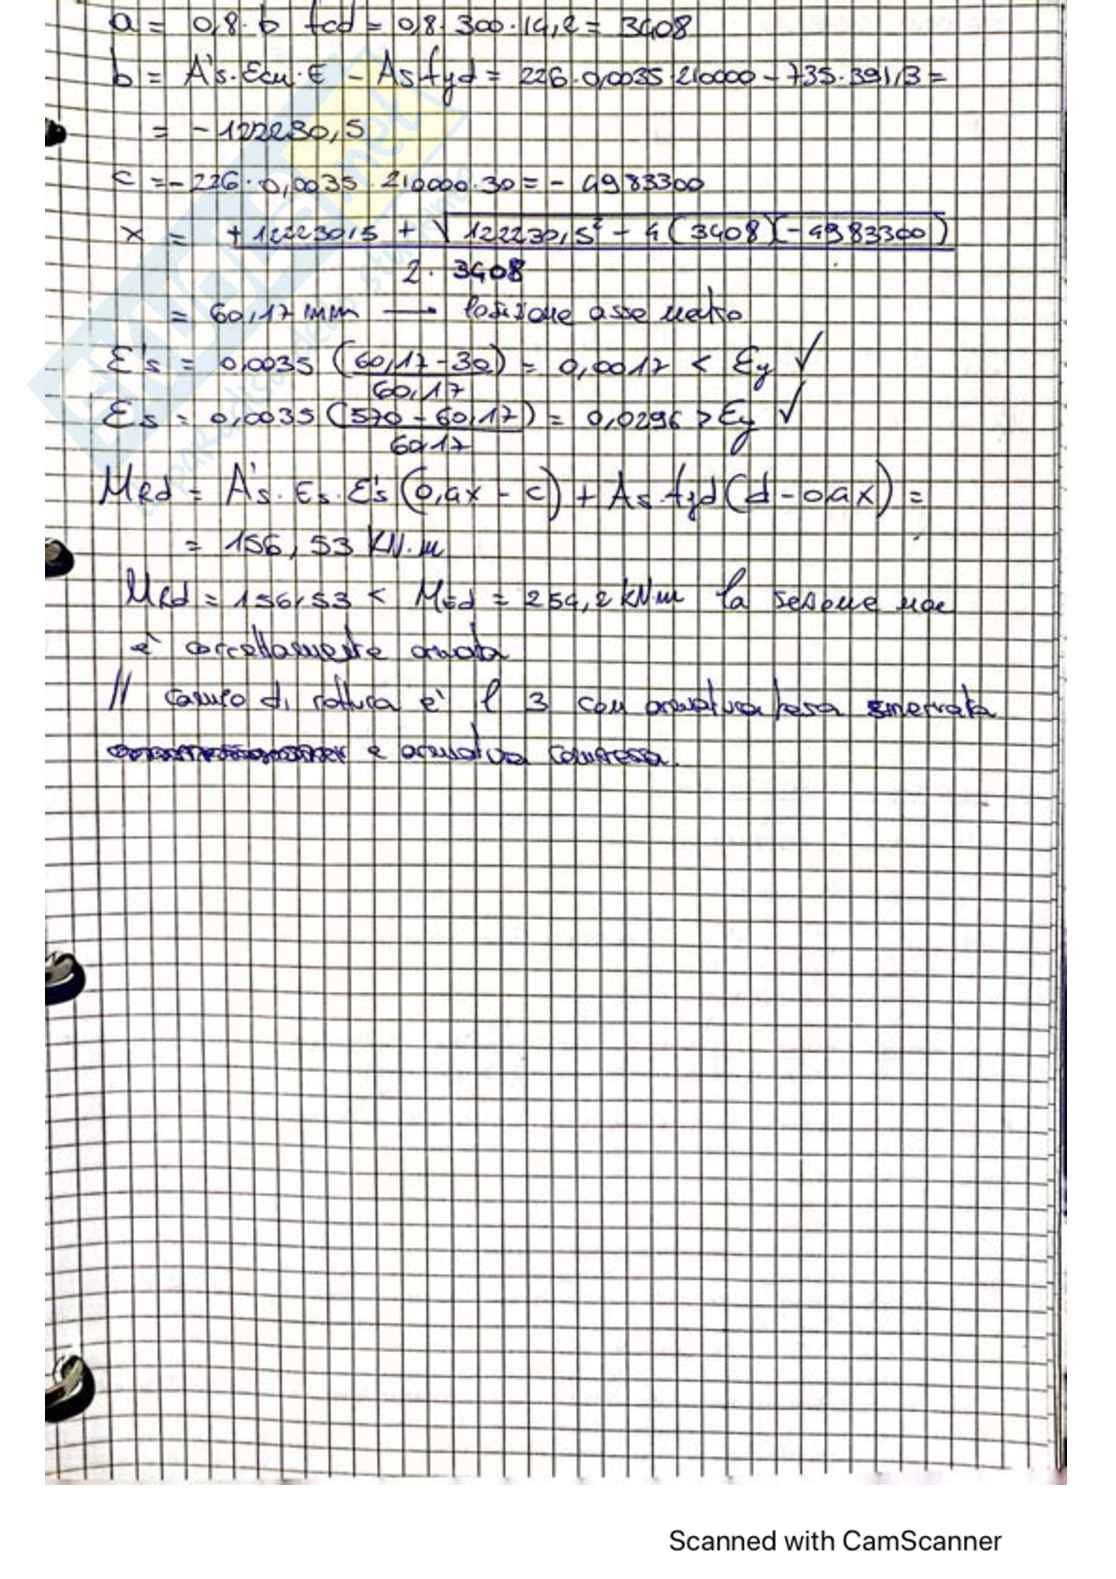 a = 0,8 · b fcd = 0,8 · 300 · 14,2 = 3408
b = A's · εcu · E - As fyd = 226 · 0,0035 · 210000 - 735 · 391,3 =
= - 122230,5
c = - 226 · 0,0035 · 210000 · 30 = - 4983300
x = + 122230,5 + √ 122230,5² - 4 (3408)(-4983300)
2 · 3408
= 60,17 mm — Posizione asse neutro
ε's = 0,0035 (60,17 - 30) = 0,0017 < εy ✓
60,17
εs = 0,0035 (570 - 60,17) = 0,0296 > εy ✓
60,17
MRd = A's · Es · ε's (0,4x - c) + As · fyd (d - 0,4x) =
= 156,53 KN·m
MRd = 156,53 < MEd = 254,2 kNm la sezione non
è correttamente armata
Il campo di rottura è il 3 con armatura tesa snervata
e armatura compressa.
Scanned with CamScanner